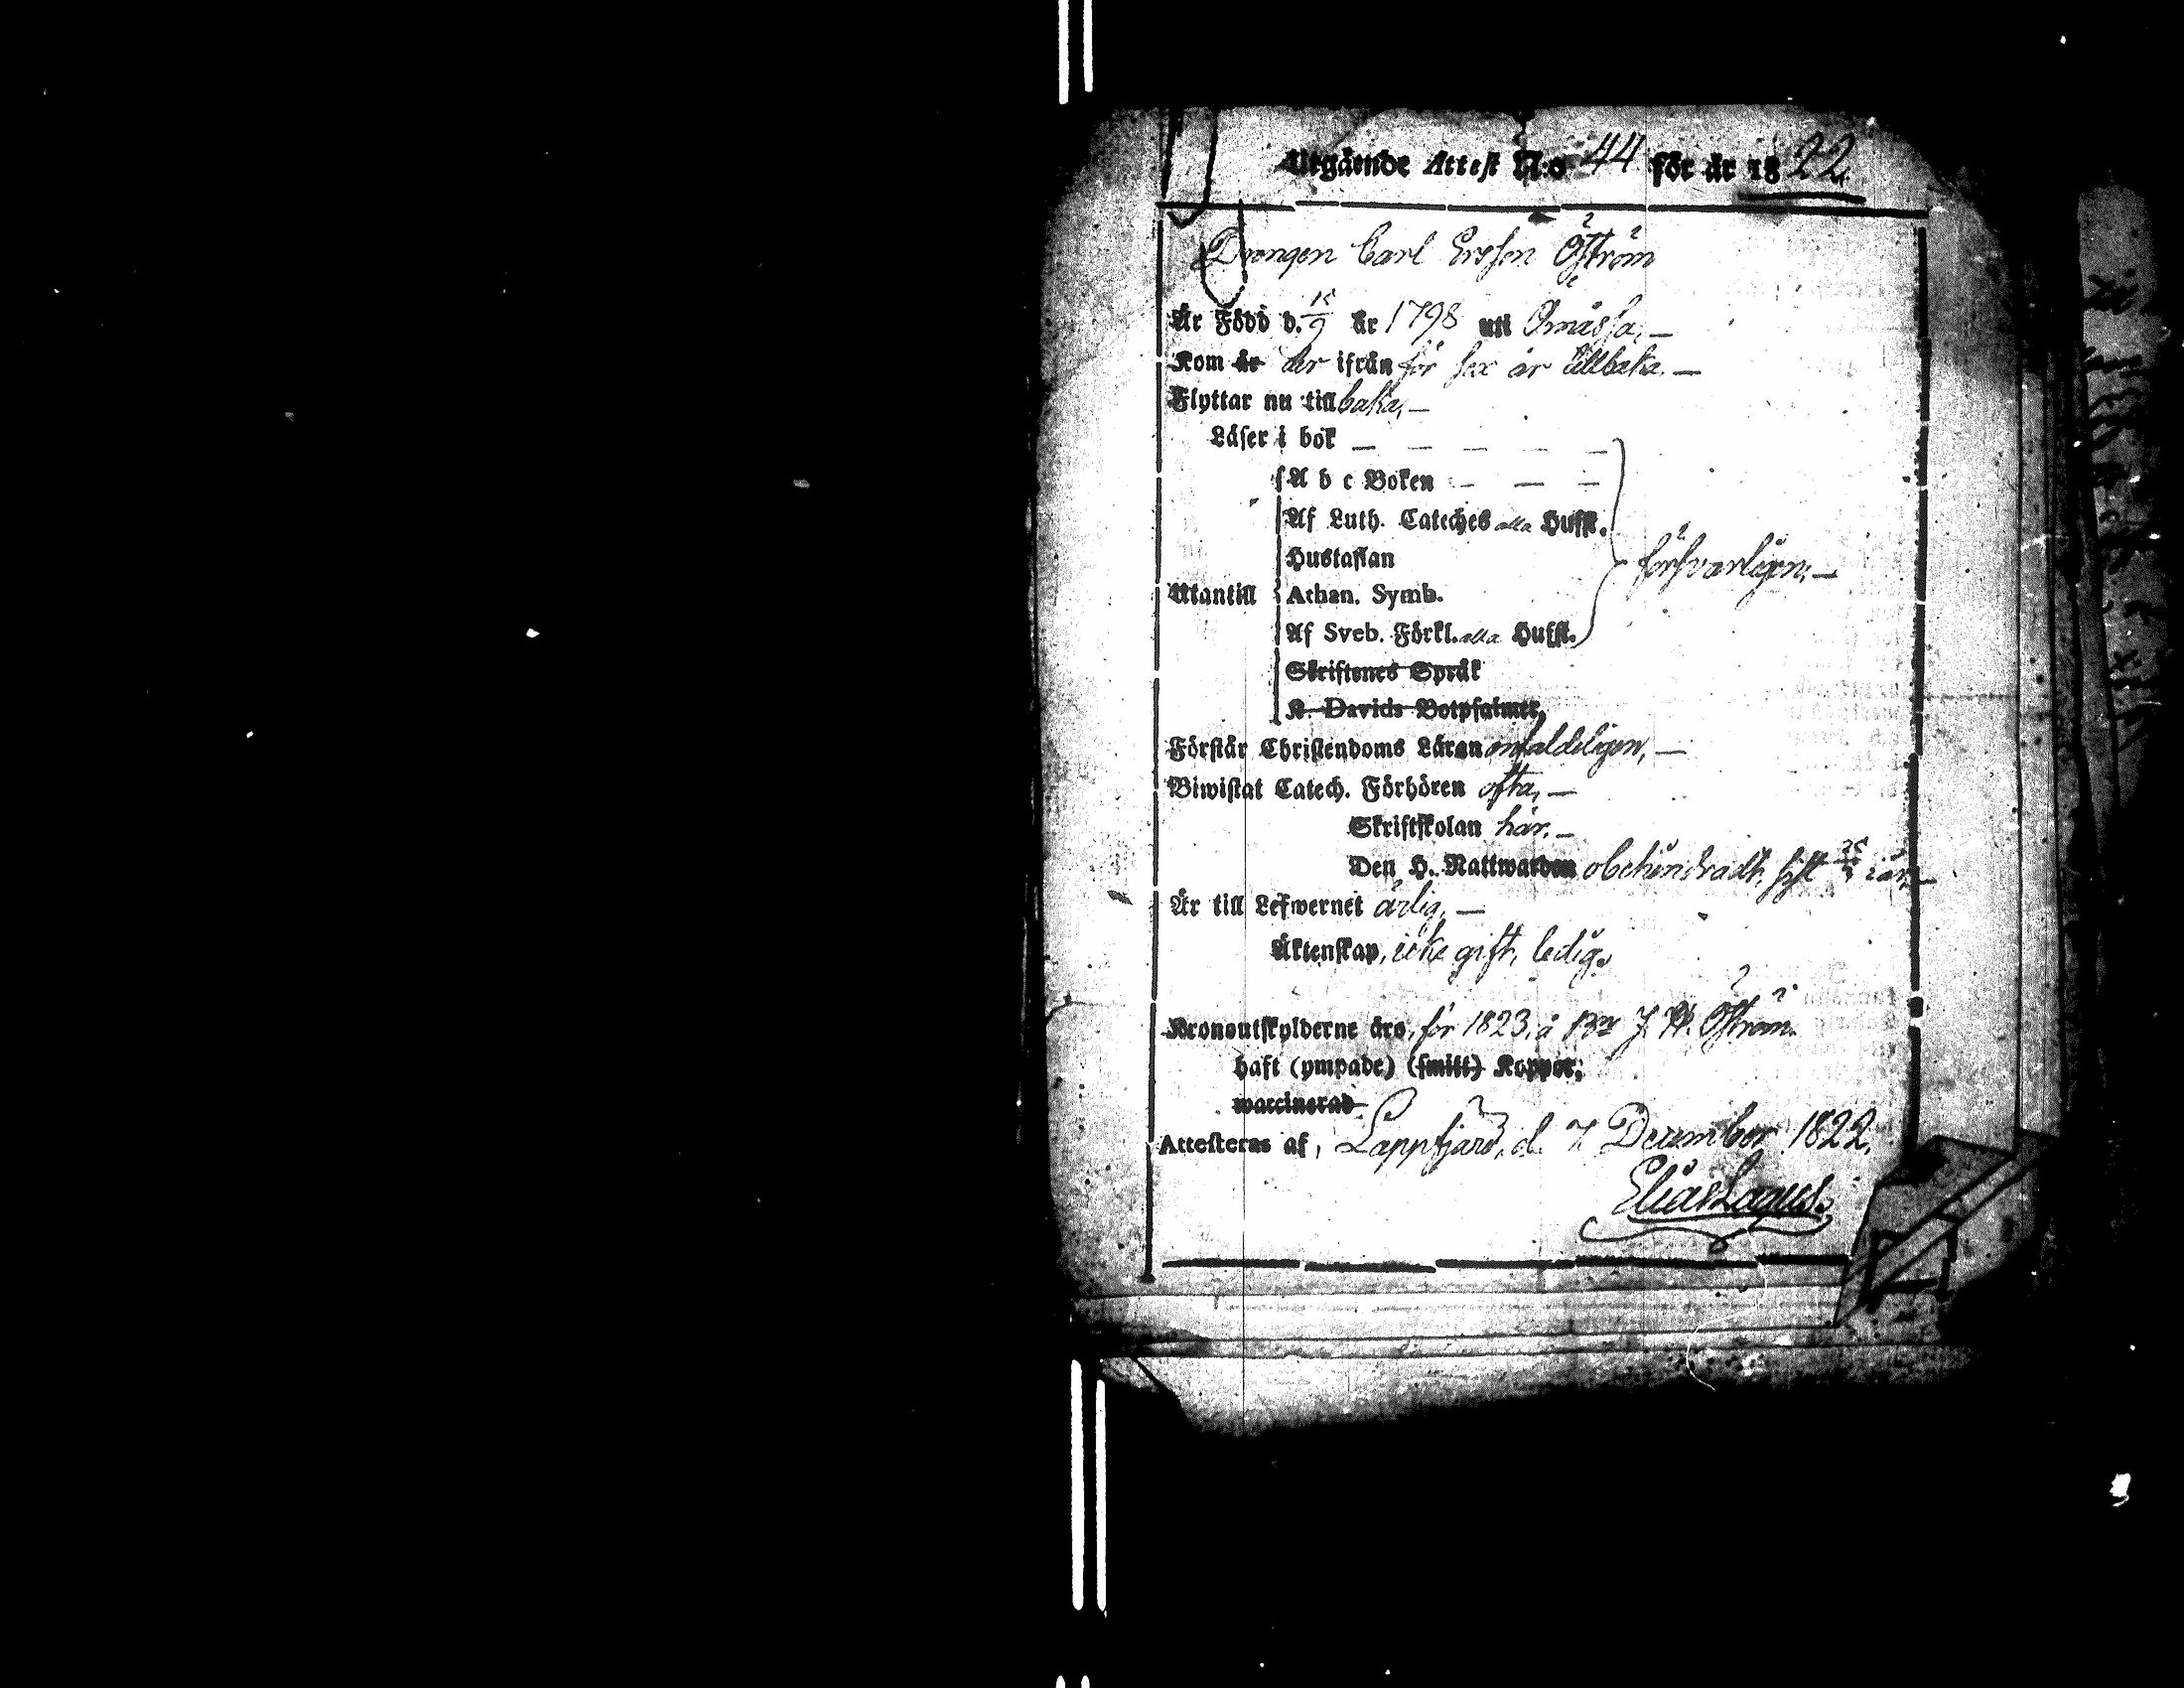 Utgående Attest N:o 44 för år 1822
Drengen Carl Ersson Öström
Är Född d. 15/9 år 1798 uti Ömåssa, —
Kom år der ifrån för sex år tillbaka, —
Flyttar nu till baka, —
Läser i bok — — — — —
A b c Boken — — —
Af Luth. Cateches alla Hufst.
Hustaflan
försvarligen, —
Utantill Athan. Symb.
Af Sveb. Förkl. alla Hufst.
Skriftenes Språk
K. Davids Botpsalmer,
Förstår Christendoms Läran enfaldeligen, —
Biwistat Catech. Förhören ofta, —
Skriftskolan här. —
Den H. Nattwarden obehindradt, sist i år, —
Är till Lefwernet ärlig, —
Äktenskap, icke gift, ledig.
Kronoutskylderne äro, för 1823, å Öström.
haft (ympade) (smitt) Koppor,
waccinerad
Attesteras af, Lappfjärd, d. 7 December 1822.
Elias Lagus.